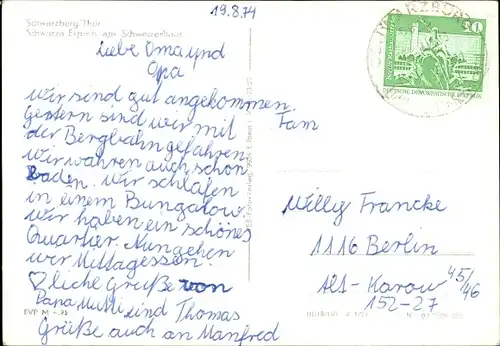 19.8.74
Schwarzburg/Thür.
Liebe Oma und
Opa
wir sind gut angekommen.
Gestern sind wir mit
der Bergbahn gefahren.
Wir wahren auch schon
Baden. wir schlafen
in einem Bungalow.
wir haben ein schönes
Quartier. Nun gehen
wir Mittagessen.
♡liche Grüße von
Papa Mutti und Thomas
Grüße auch an Manfred
EVP M -,25
20
DEUTSCHE DEMOKRATISCHE REPUBLIK
Fam
Willy Francke
1116 Berlin
Alt-Karow 45/46
152-27